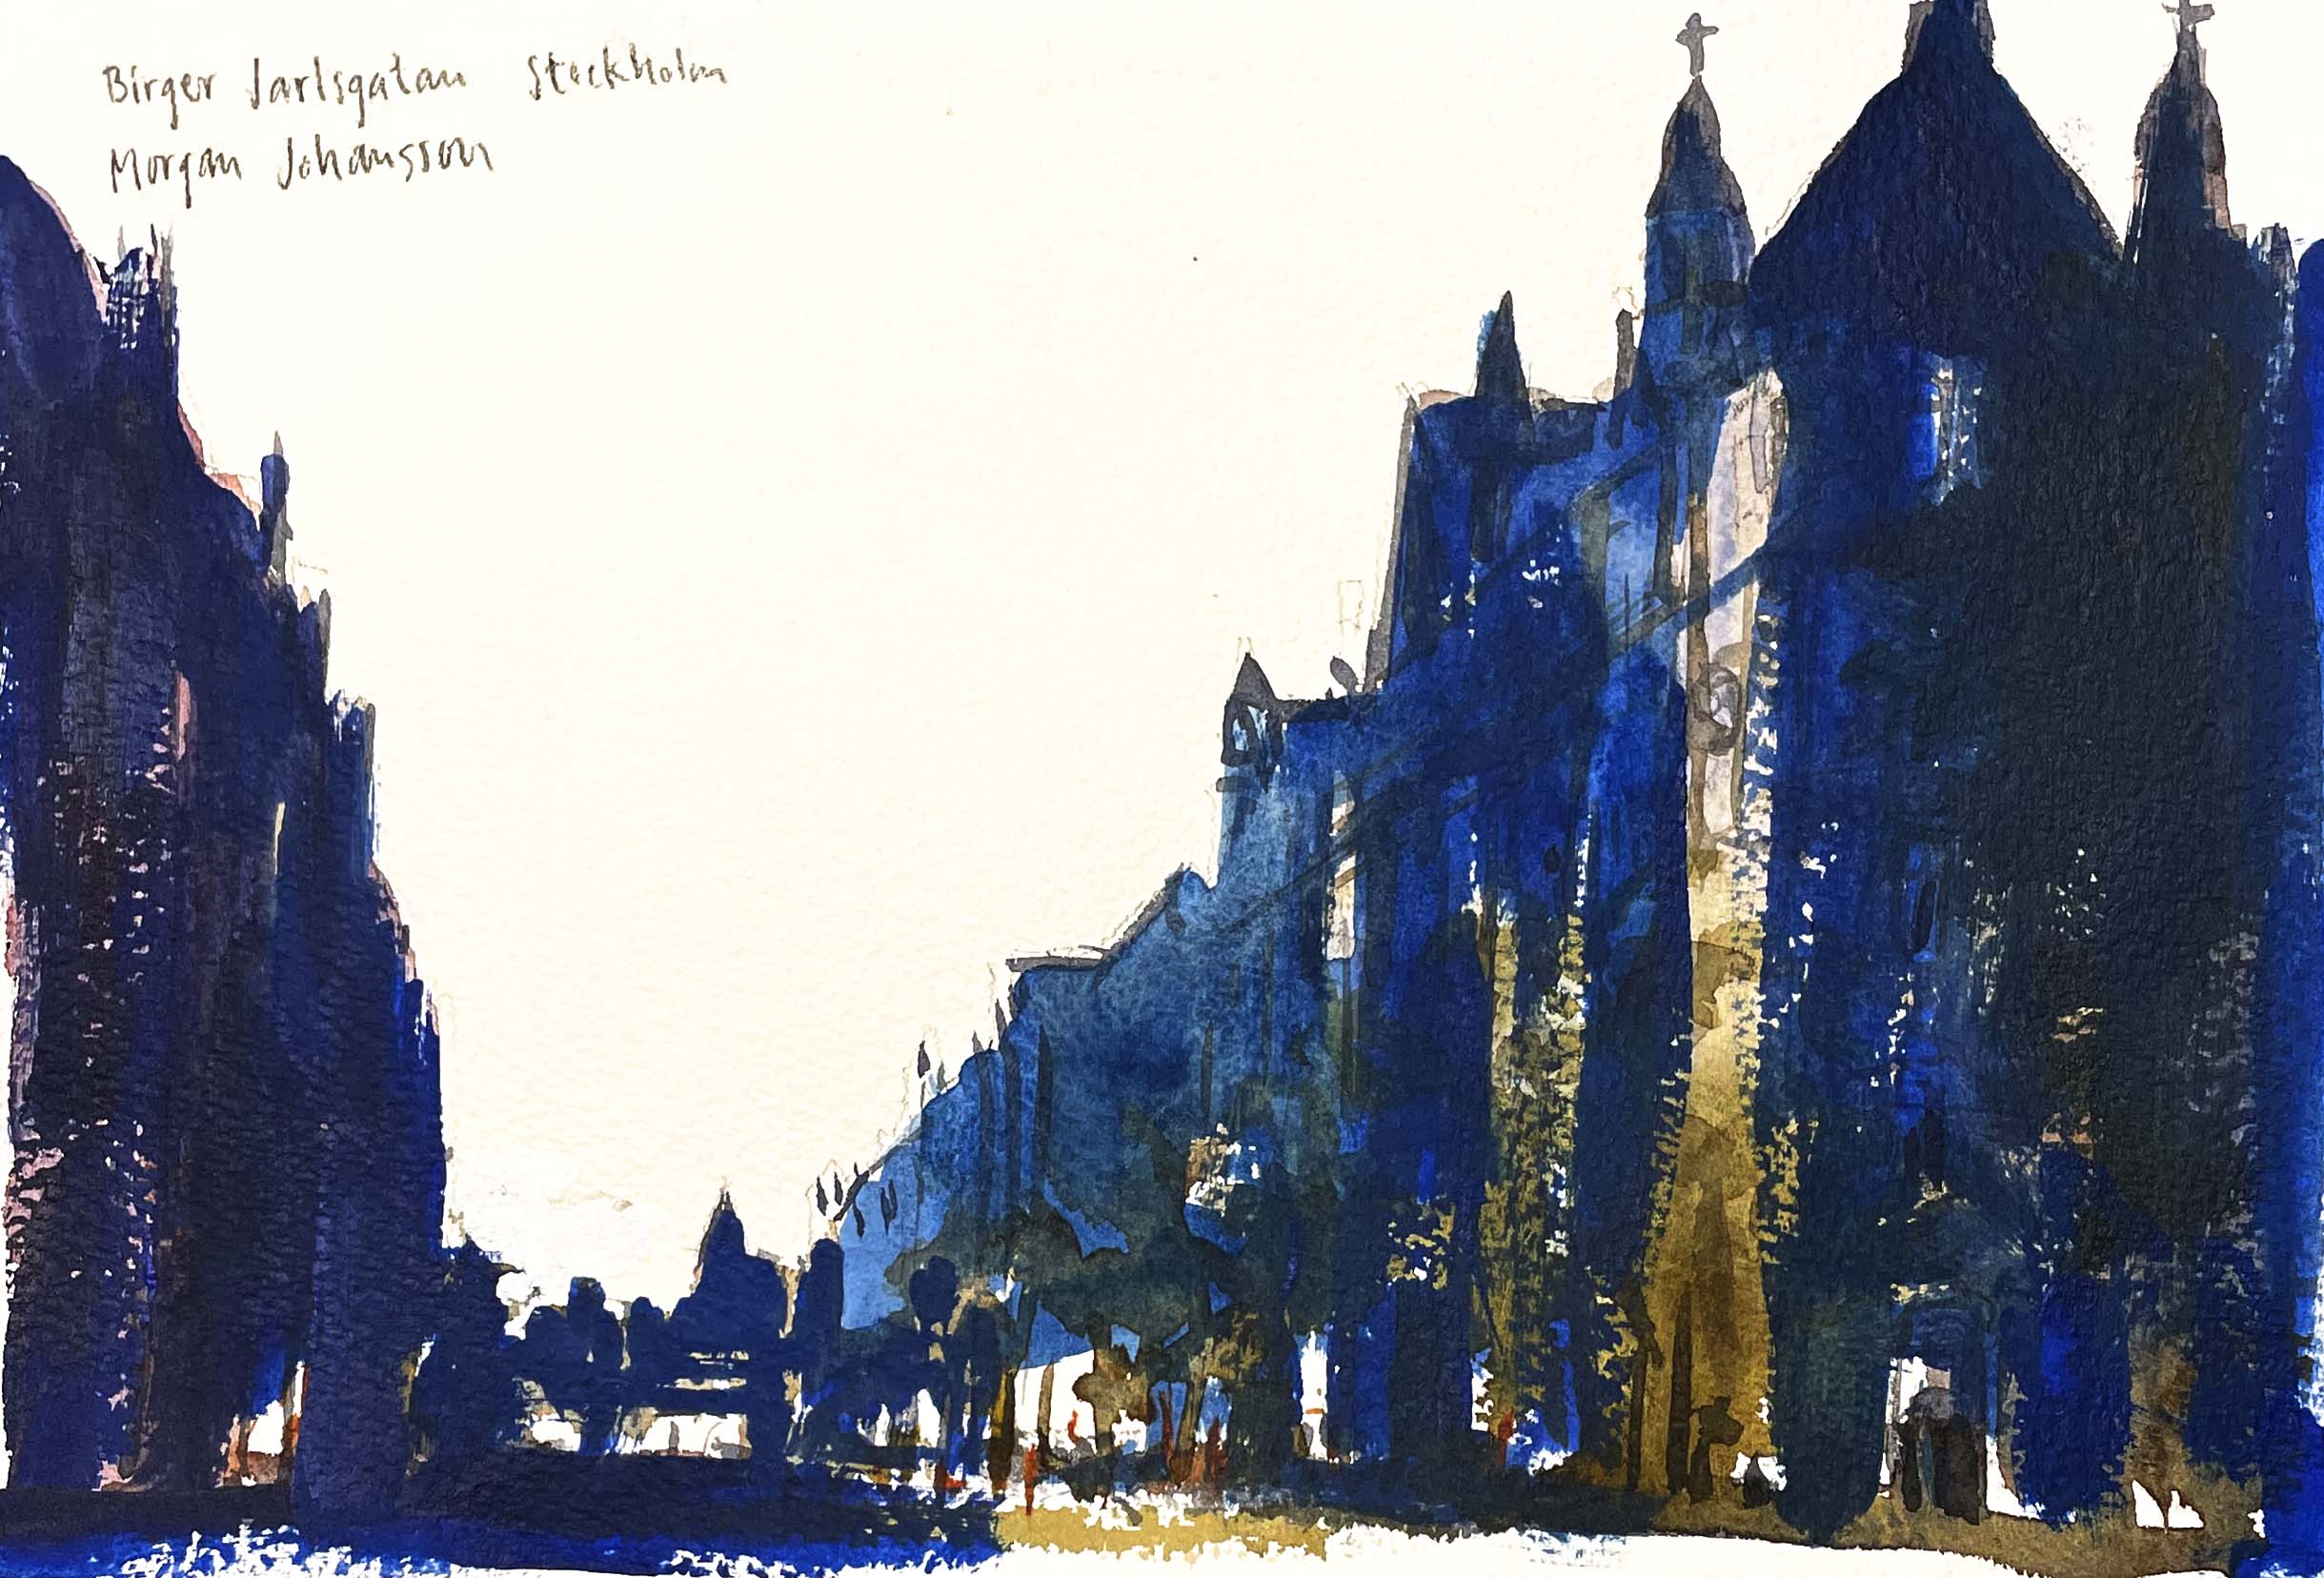 Birger Jarlsgatan Stockholm
Morgan Johansson